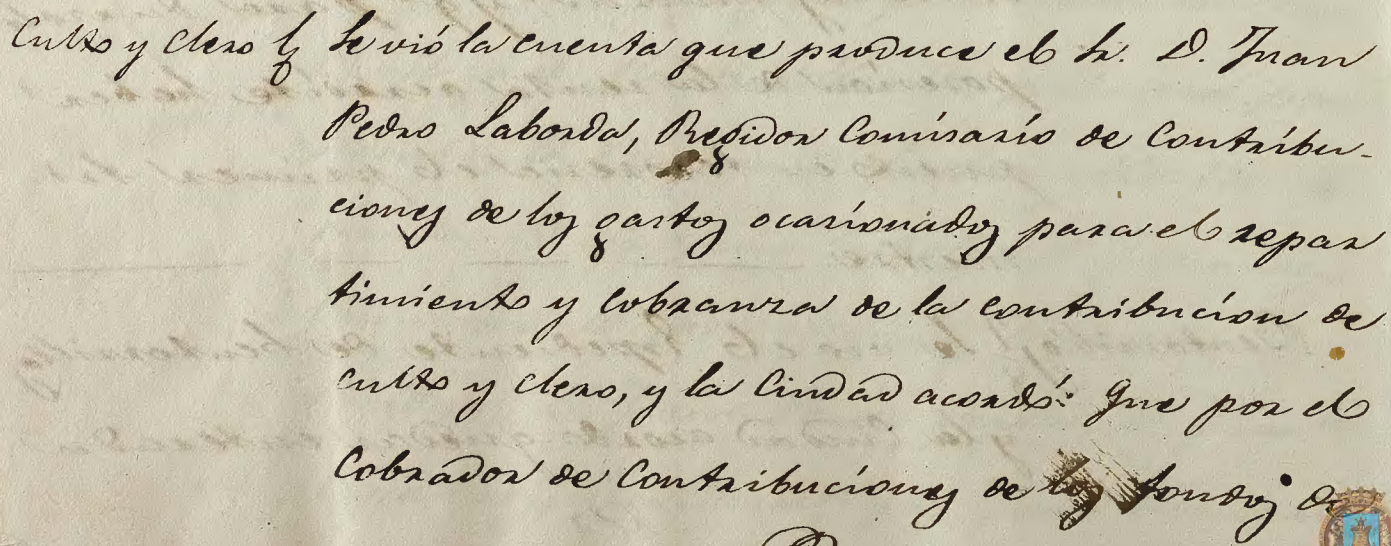 Culto y clero
Se vió la cuenta que produce el Sr. D. Juan
Pedro Laborda, Regidor Comisario de Contribu-
ciones de los gastos ocasionados para el repar
timiento y cobranza de la contribucion de
culto y clero, y la Ciudad acordó: Que por el
Cobrador de Contribuciones de los fondos de